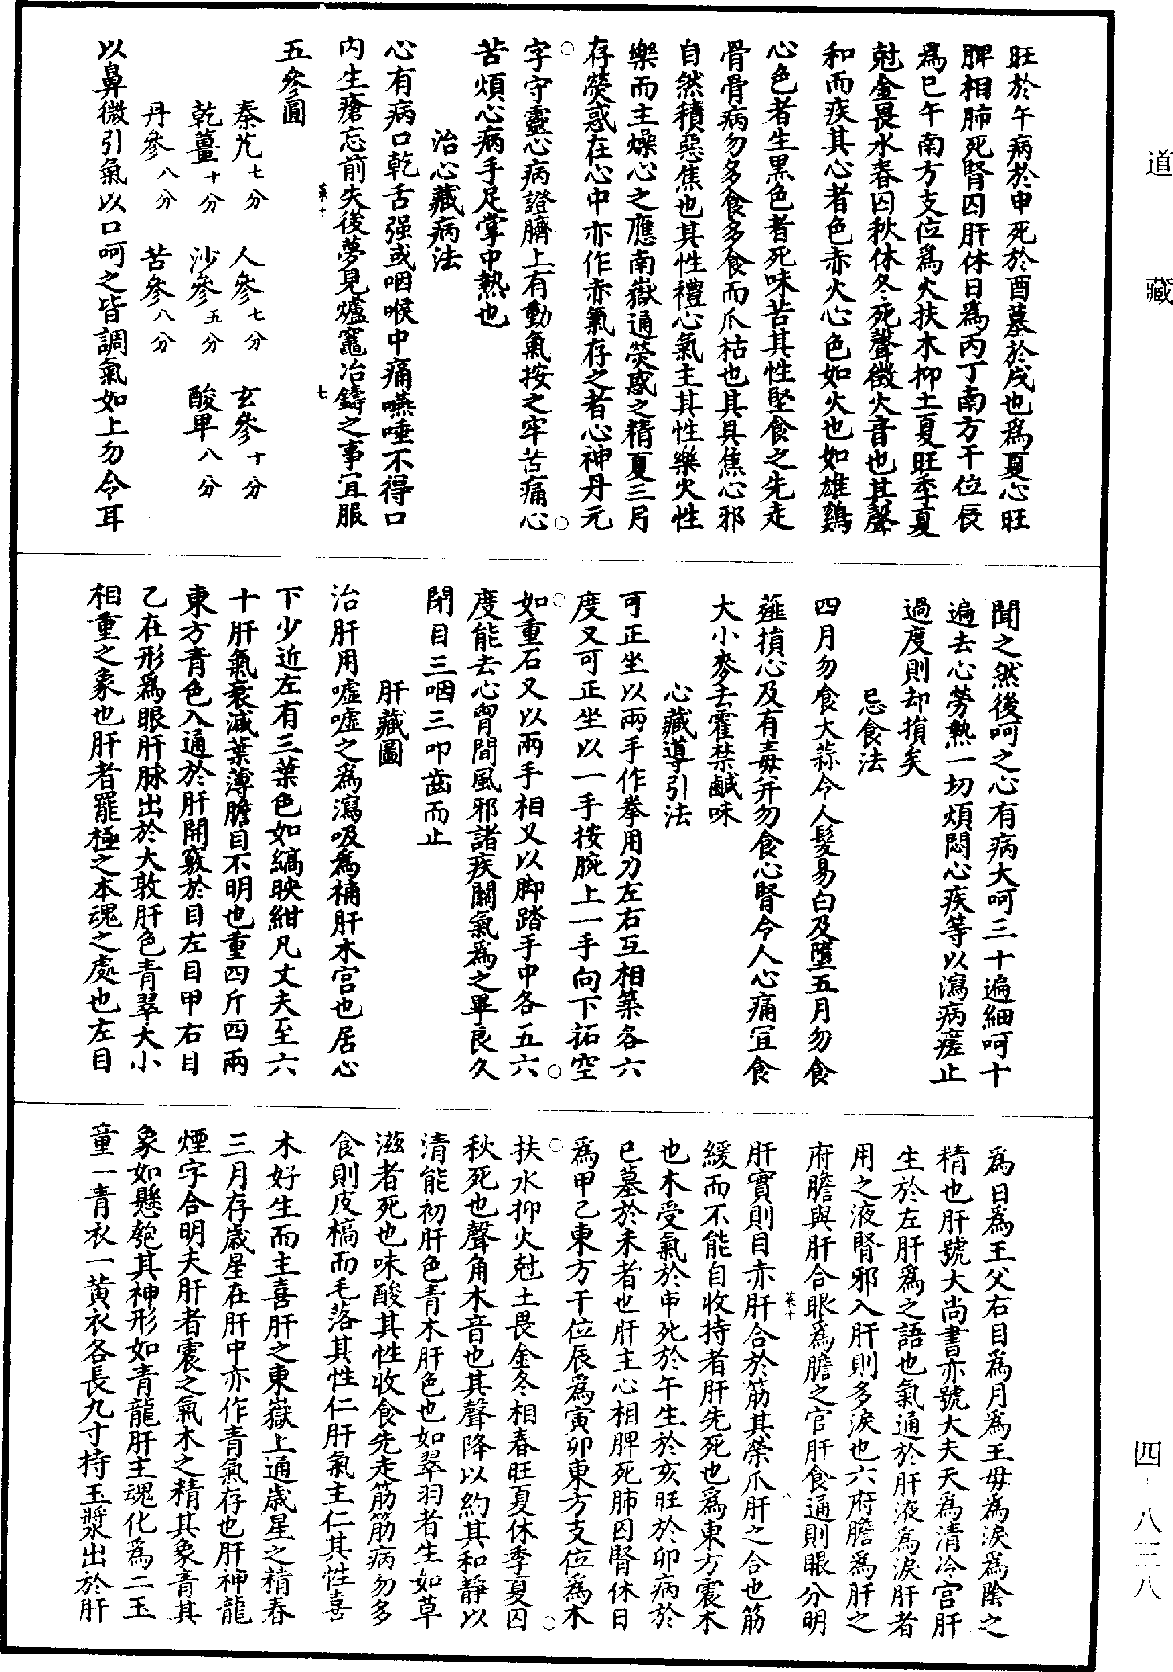 道藏
四·八三八
旺於午病於申死於酉墓於戌也為夏心旺
脾相肺死腎囚肝休日為丙丁南方干位辰
為巳午南方支位為火扶木抑土夏旺季夏
尅金畏水春囚秋休冬死聲徵火音也其聲
和而疾其心者色赤火心色如火也如雄鷄
心色者生黑色者死味苦其性堅食之先走
骨骨病勿多食多食而爪枯也其具焦心邪
自然積惡焦也其性禮心氣主其性樂火性
樂而主燥心之應南嶽通熒惑之精夏三月
存熒惑在心中亦作赤氣存之者心神丹元
字守靈心病證臍上有動氣按之牢苦痛心
苦煩心病手足掌中熱也
治心藏病法
心有病口乾舌强或咽喉中痛嚥唾不得口
内生瘡忘前失後夢見爐竈冶鑄之事宜服
五參圓
秦艽七分 人參七分 玄參十分
乾薑十分 沙參五分 酸單八分
丹參八分 苦參八分
以鼻微引氣以口呵之皆調氣如上勿令耳
聞之然後呵之心有病大呵三十遍細呵十
遍去心勞熱一切煩悶心疾等以瀉病瘥止
過度則却損矣
忌食法
四月勿食大蒜令人髮易白及墮五月勿食
薤損心及有毒并勿食心腎令人心痛宜食
大小麥去霍禁鹹味
心藏導引法
可正坐以兩手作拳用力左右互相築各六
度又可正坐以一手按腕上一手向下拓空
如重石又以兩手相叉以脚踏手中各五六
度能去心胷間風邪諸疾關氣為之畢良久
閉目三咽三叩齒而止
肝藏圖
治肝用噓噓之為瀉吸為補肝木宫也居心
下少近左有三葉色如縞映紺凡丈夫至六
十肝氣衰減葉薄膽目不明也重四斤四兩
東方青色入通於肝開竅於目左目甲右目
乙在形為眼肝脉出於大敦肝色青翠大小
相重之象也肝者罷極之本魂之處也左目
為日為王父右目為月為王母為淚為陰之
精也肝號大尚書亦號大夫天為清冷宫肝
生於左肝為之語也氣通於肝液為淚肝者
用之液腎邪入肝則多淚也六府膽為肝之
府膽與肝合眼為膽之官肝食通則眼分明
肝實則目赤肝合於筋其榮爪肝之合也筋
緩而不能自收持者肝先死也為東方震木
也木受氣於申死於午生於亥旺於卯病於
巳墓於未者也肝主心相脾死肺囚腎休日
為甲乙東方干位辰為寅卯東方支位為木
扶水抑火尅土畏金冬相春旺夏休季夏囚
秋死也聲角木音也其聲降以約其和靜以
清能初肝色青木肝色也如翠羽者生如草
滋者死也味酸其性收食先走筋筋病勿多
食則皮槁而毛落其性仁肝氣主仁其性喜
木好生而主喜肝之東嶽上通歲星之精春
三月存歲星在肝中亦作青氣存也肝神龍
煙字合明夫肝者震之氣木之精其象青其
象如懸匏其神形如青龍肝主魂化為二玉
童一青衣一黄衣各長九寸持玉漿出於肝